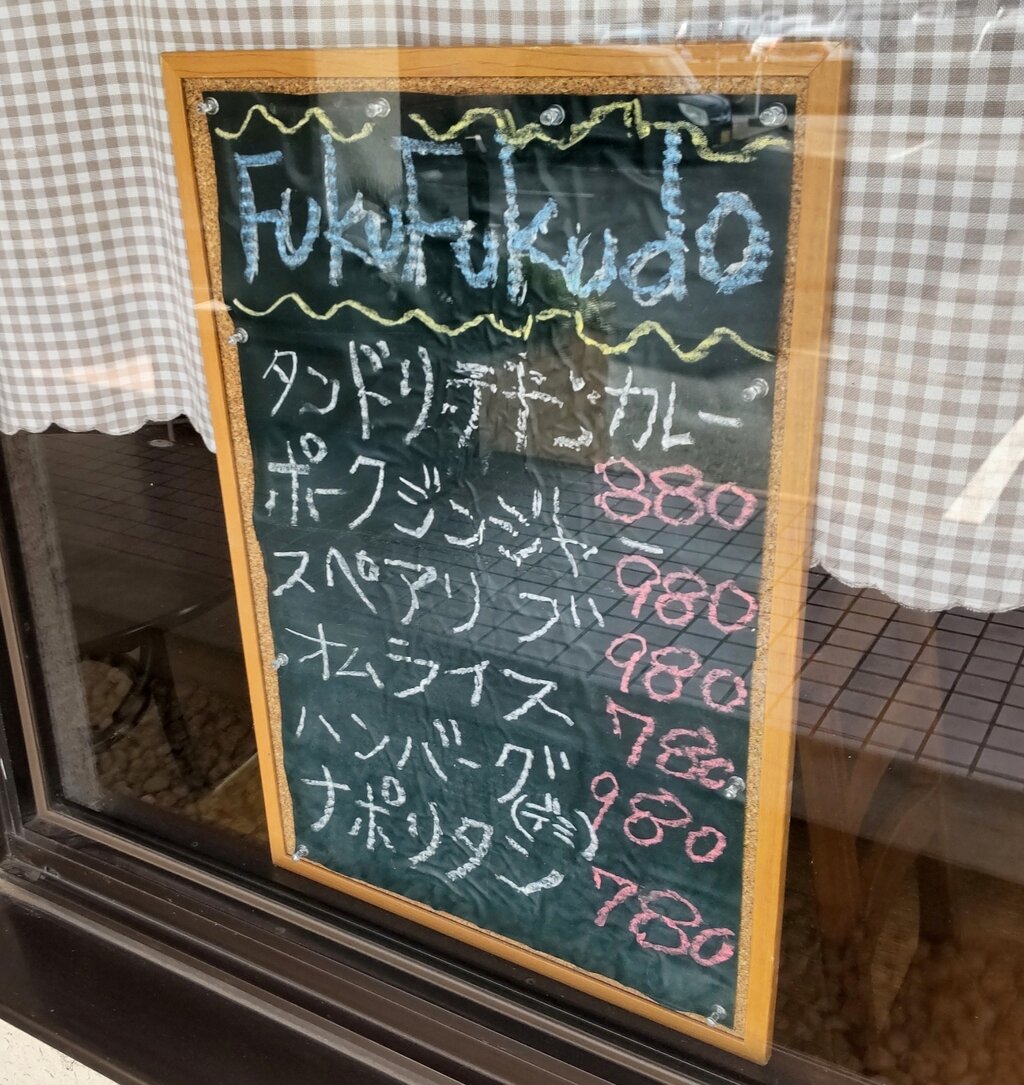 FukuFukudo
タンドリチキンカレー
880
ポークジンジャー
980
スペアリブ
980
オムライス
780
ハンバーグ(デミ)
980
ナポリタン
780